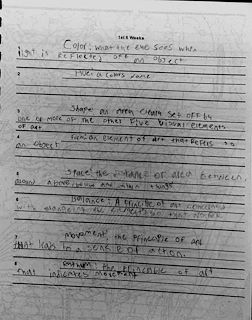 1st 6 Weeks
Color: what the eye sees when
light is reflected off an object
2
Hue: a colors name
3 Shape: an area clearly set off by
one or more of the other five visual elements
of art
4 Form: an element of art that refers to
an object
5 Space: the distance or area between,
around, above, below and within things
6 Balance: A principle of art concerned
with
7 movement: the principle of art
that leads to a sense of action.
8 Rhythm: the principle of art
that indicates movement